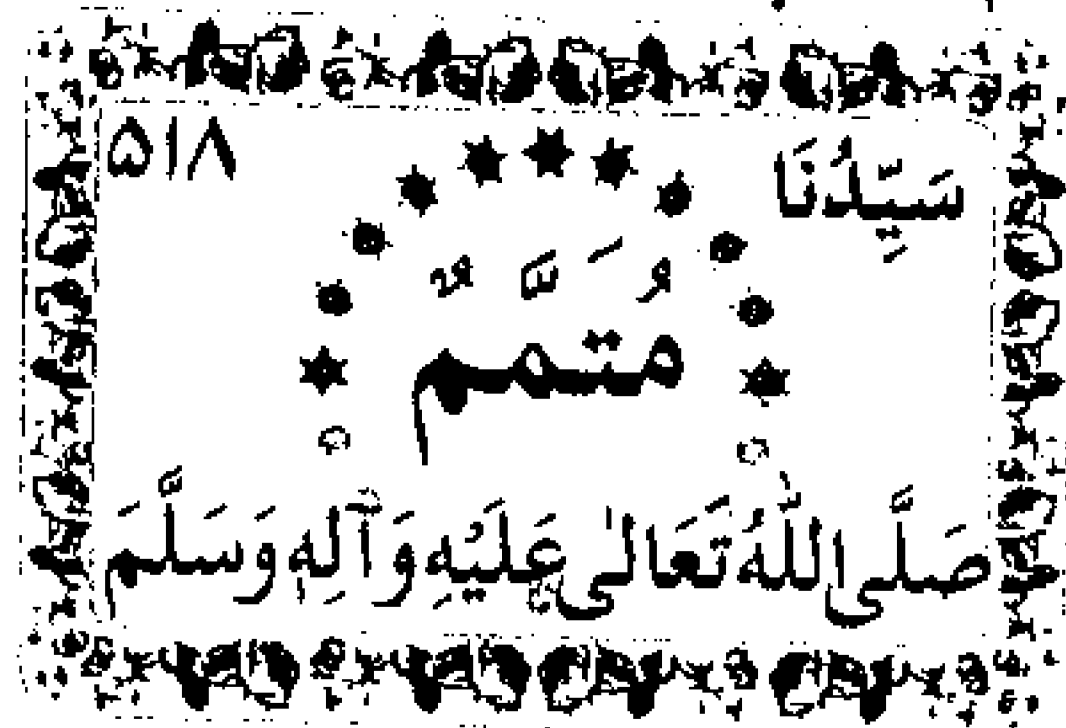 سَيِّدُنَا ۵۱۸
مُتَمَّمٌ
صَلَّى اللّٰهُ تَعَالٰى عَلَيْهِ وَآلِهٖ وَسَلَّمَ